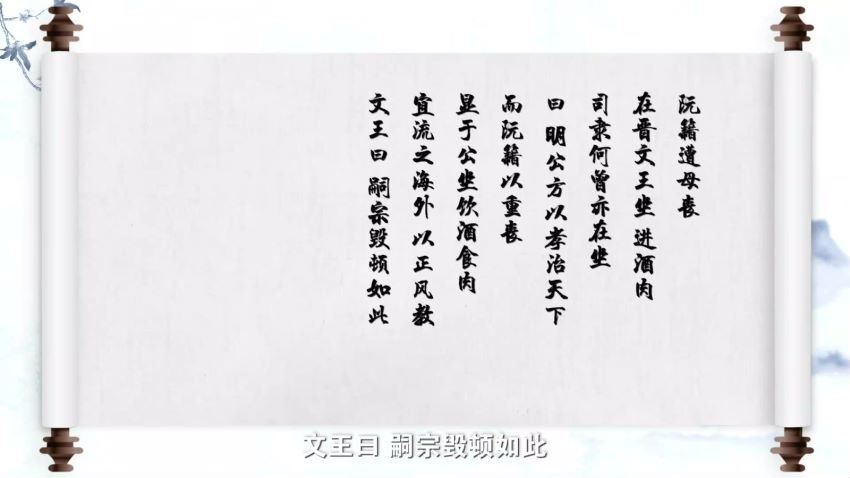 阮籍遭母丧
在晋文王坐 进酒肉
司隶何曾亦在坐
曰 明公方以孝治天下
而阮籍以重丧
显于公坐饮酒食肉
宜流之海外 以正风教
文王曰 嗣宗毁顿如此
文王曰 嗣宗毁顿如此